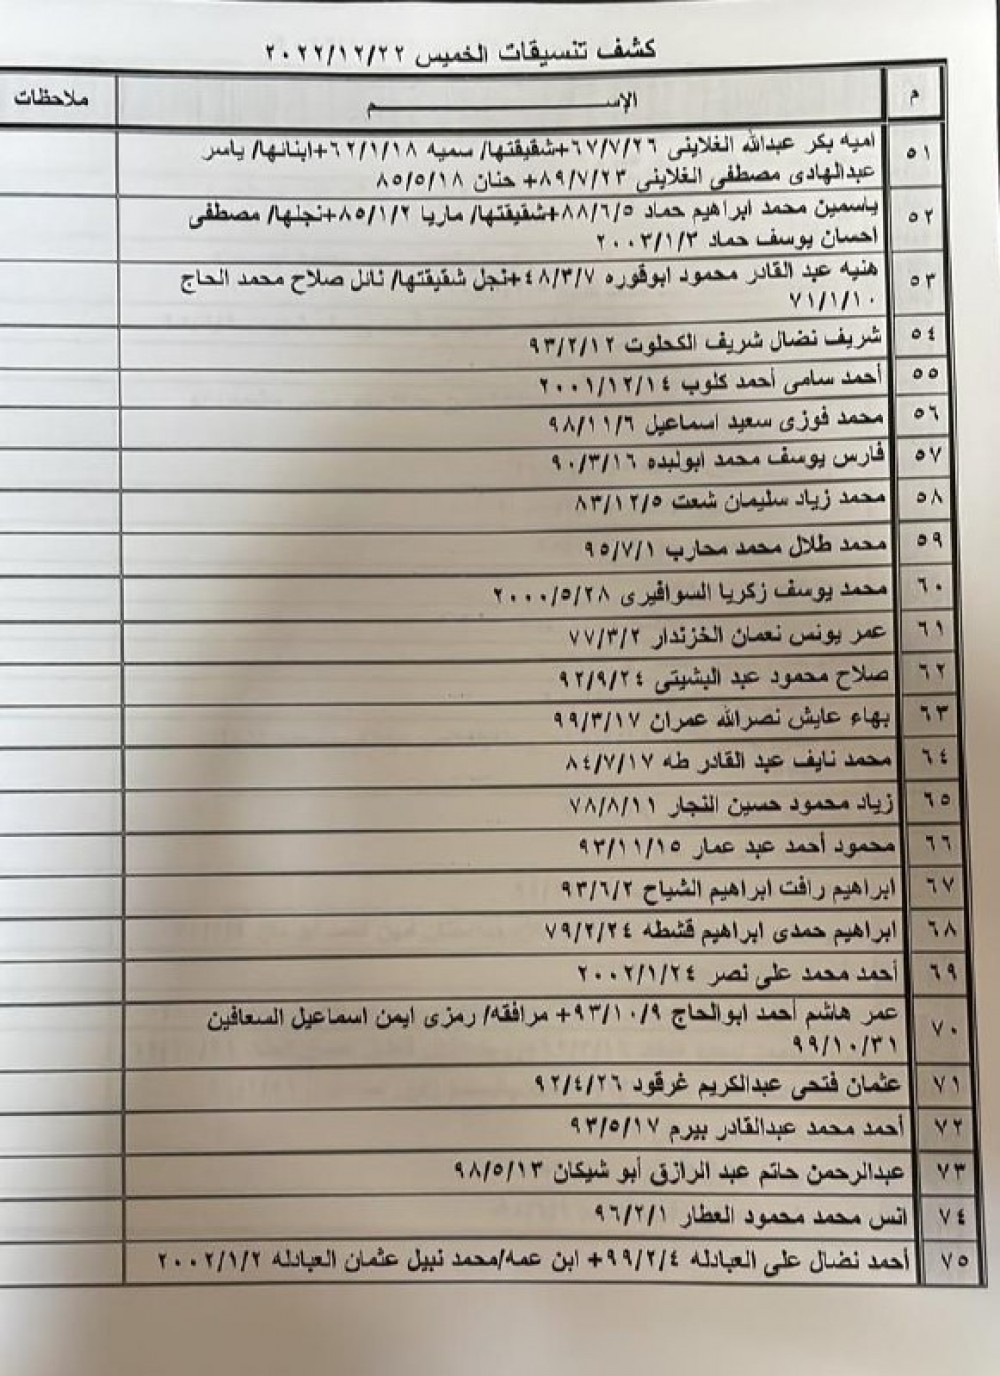 كشف تنسيقات الخميس ٢٠٢٢/١٢/٢٢
م الإســـــــم ملاحظات
٥١ اميه بكر عبدالله الغلاينى ٦٧/٧/٢٦+شقيقتها/ سميه ٦٢/١/١٨+ابنائها/ ياسر
عبدالهادى مصطفى الغلاينى ٨٩/٧/٢٣+ حنان ٨٥/٥/١٨
٥٢ ياسمين محمد ابراهيم حماد ٨٨/٦/٥+شقيقتها/ ماريا ٨٥/١/٢+نجلها/ مصطفى
احسان يوسف حماد ٢٠٠٣/١/٣
٥٣ هنيه عبد القادر محمود ابوقوره ٤٨/٣/٧+نجل شقيقتها/ نائل صلاح محمد الحاج
٧١/١/١٠
٥٤ شريف نضال شريف الكحلوت ٩٣/٢/١٢
٥٥ أحمد سامى أحمد كلوب ٢٠٠١/١٢/١٤
٥٦ محمد فوزى سعيد اسماعيل ٩٨/١١/٦
٥٧ فارس يوسف محمد ابولبده ٩٠/٣/١٦
٥٨ محمد زياد سليمان شعت ٨٣/١٢/٥
٥٩ محمد طلال محمد محارب ٩٥/٧/١
٦٠ محمد يوسف زكريا السوافيرى ٢٠٠٠/٥/٢٨
٦١ عمر يونس نعمان الخزندار ٧٧/٣/٢
٦٢ صلاح محمود عبد البشيتى ٩٢/٩/٢٤
٦٣ بهاء عايش نصرالله عمران ٩٩/٣/١٧
٦٤ محمد نايف عبد القادر طه ٨٤/٧/١٧
٦٥ زياد محمود حسين النجار ٧٨/٨/١١
٦٦ محمود أحمد عبد عمار ٩٣/١١/١٥
٦٧ ابراهيم رافت ابراهيم الشياح ٩٣/٦/٢
٦٨ ابراهيم حمدى ابراهيم قشطه ٧٩/٢/٢٤
٦٩ أحمد محمد على نصر ٢٠٠٢/١/٢٤
٧٠ عمر هاشم أحمد ابوالحاج ٩٣/١٠/٩+ مرافقه/ رمزى ايمن اسماعيل السعافين
٩٩/١٠/٣١
٧١ عثمان فتحى عبدالكريم غرقود ٩٢/٤/٢٦
٧٢ أحمد محمد عبدالقادر بيرم ٩٣/٥/١٧
٧٣ عبدالرحمن حاتم عبد الرازق أبو شيكان ٩٨/٥/١٣
٧٤ انس محمد محمود العطار ٩٦/٢/١
٧٥ أحمد نضال على العبادله ٩٩/٢/٤+ ابن عمه/محمد نبيل عثمان العبادله ٢٠٠٢/١/٢